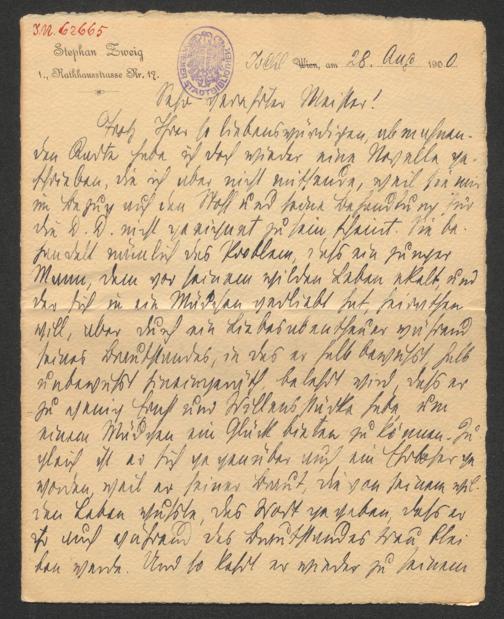 IN. 62665
Stephan Zweig
1., Rathhausstrasse Nr. 17.
WIENER STADTBIBLIOTHEK
Ischl Wien, am 28. Aug 1900.
Sehr verehrter Meister!
Trotz Ihrer so liebenswürdigen abmahnen-
den Karte habe ich doch wieder eine Novelle ge-
schrieben, die ich aber nicht mitsende, weil sie mir
im Bezug auf den Stoff und seine Behandlung für
die D. D. nicht geeignet zu sein scheint. Sie be-
handelt nämlich das Problem, dass ein junger
Mann, dem vor seinem wilden Leben ekelt und
der sich in ein Mädchen verliebt hat heirathen
will, aber durch ein Liebesabenteuer während
seines Brautstandes, in das er halb bewusst halb
unbewusst hineingeräth belehrt wird, dass er
zu wenig Ernst und Willensstärke habe, um
einem Mädchen ein Glück bieten zu können. Zu
gleich ist er sich gegenüber auch ein Ehrloser ge
worden weil er seiner Braut, die von seinem wil-
den Leben wusste, das Wort gegeben dass er
auch während des Brautstandes treu blei
ben werde. Und so kehrt er wieder zu seinem